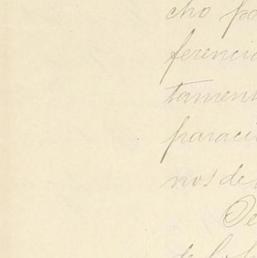 cho pa
ferencia
tamen
paraci
nos de
De